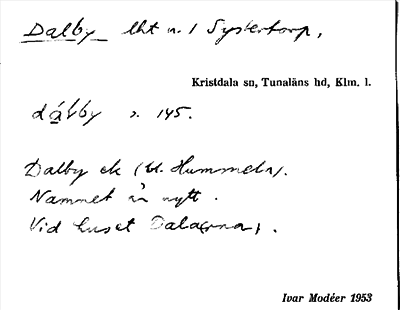 Dalby lht u. 1 Systertorp,
Kristdala sn, Tunaläns hd, Klm. l.
dálby s. 145.
Dalby ek (bl. Hummeln).
Namnet är nytt.
Vid huset Dala(rna).
Ivar Modéer 1953